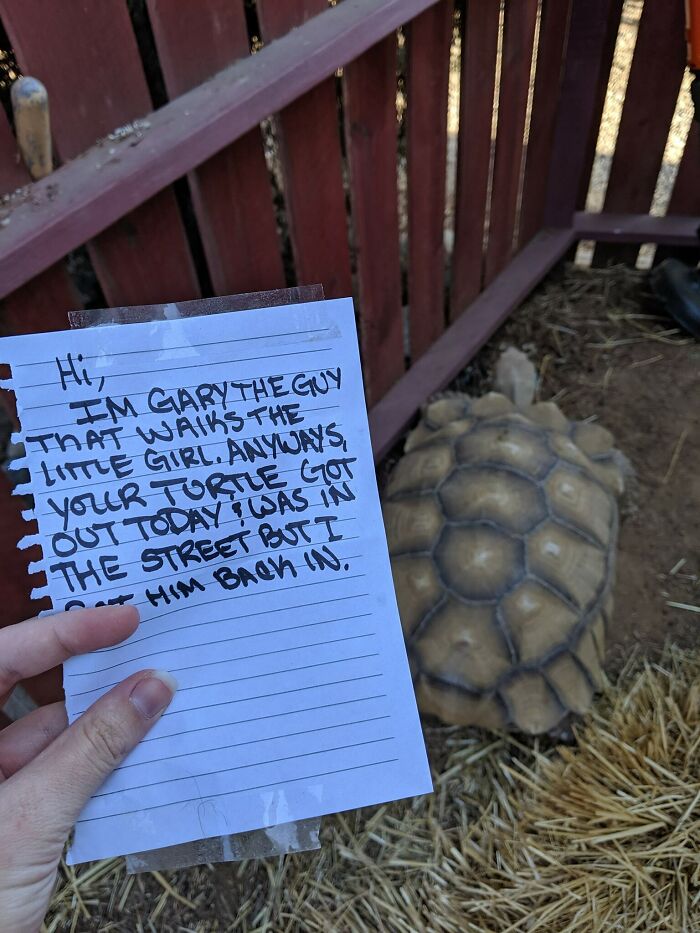 Hi,
IM GARY THE GUY
THAT WALKS THE
LITTLE GIRL. ANYWAYS,
YOUR TURTLE GOT
OUT TODAY & WAS IN
THE STREET BUT I
HIM BACK IN.